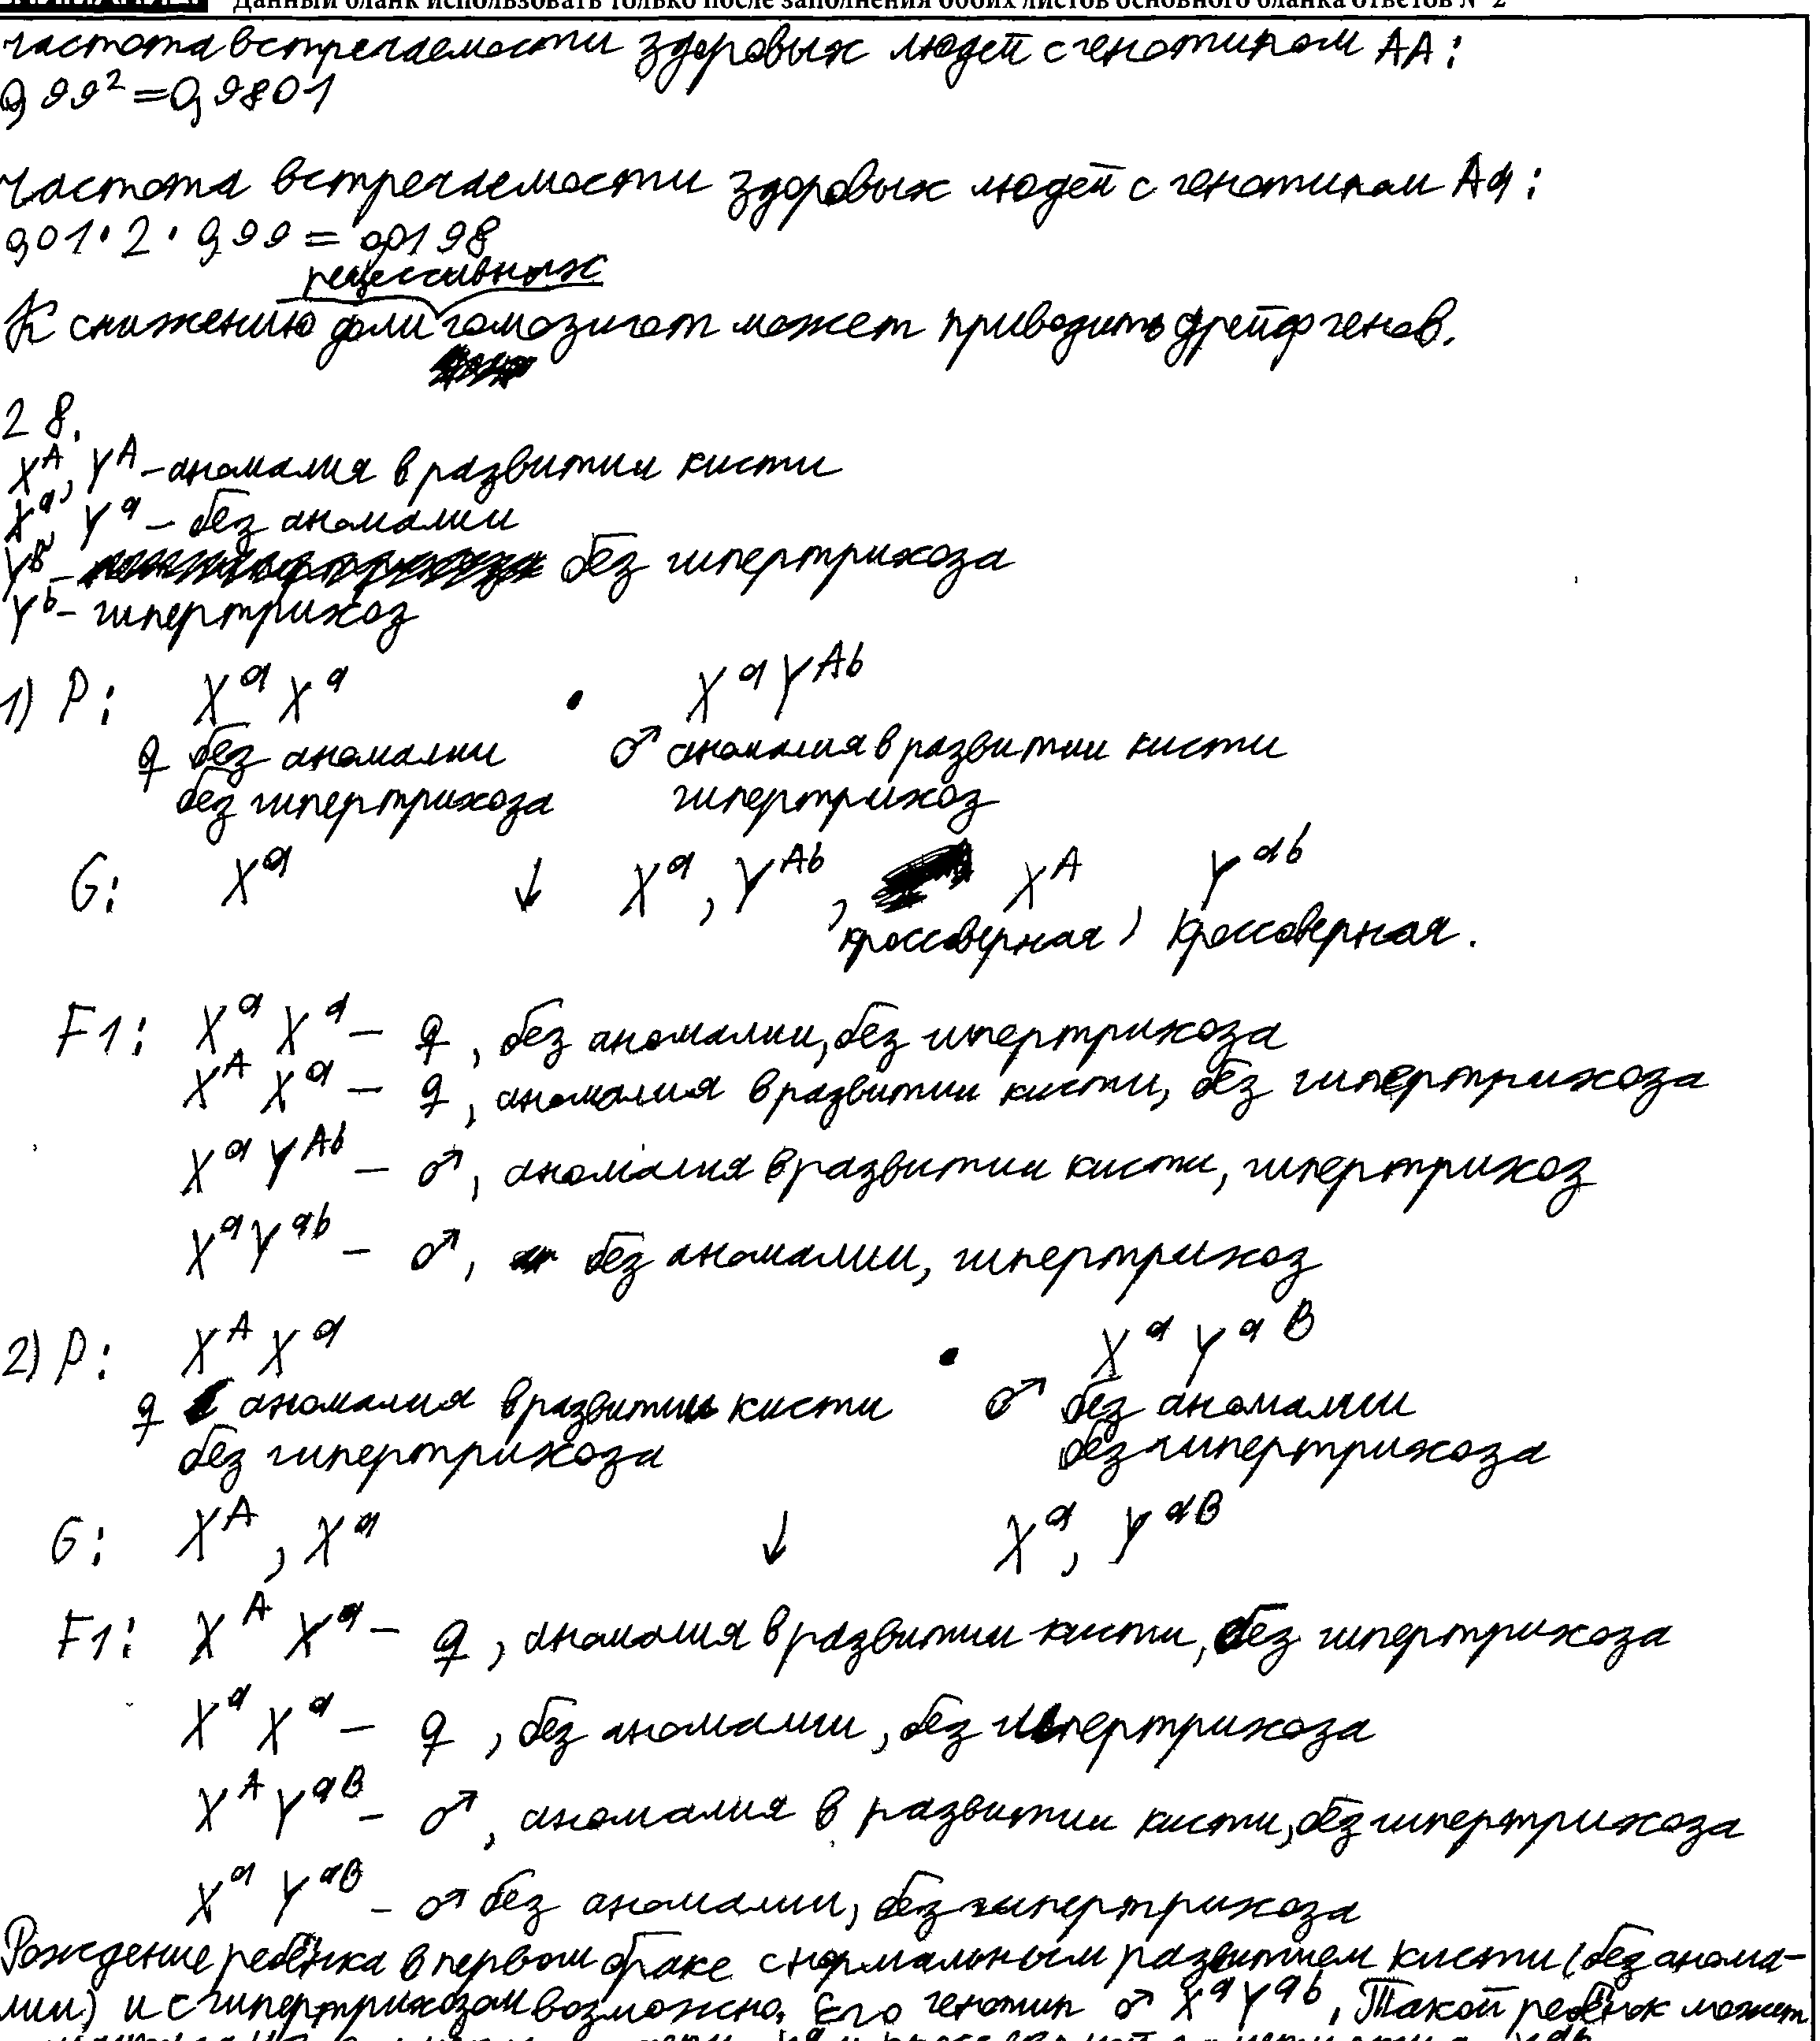 Данный бланк использовать только после заполнения обоих листов основного бланка ответов № 2
частота встречаемости здоровых людей с генотипом АА:
0,99² = 0,9801
частота встречаемости здоровых людей с генотипом Аа:
0,01 · 2 · 0,99 = 0,0198
рецессивных
К снижению доли гомозигот может приводить дрейф генов.
28.
Xᴬ, Yᴬ – аномалия в развитии кисти
Xᵃ, Yᵃ – без аномалии
Yᴮ – без гипертрихоза
Yᵇ – гипертрихоз
1) P: XᵃXᵃ · XᵃYᴬᵇ
♀ без аномалии ♂ аномалия в развитии кисти
без гипертрихоза гипертрихоз
G: Xᵃ ↓ Xᵃ, Yᴬᵇ, Xᴬ Yᵃᵇ
кроссоверная, кроссоверная.
F1: XᵃXᵃ – ♀, без аномалии, без гипертрихоза
XᴬXᵃ – ♀, аномалия в развитии кисти, без гипертрихоза
XᵃYᴬᵇ – ♂, аномалия в развитии кисти, гипертрихоз
XᵃYᵃᵇ – ♂, без аномалии, гипертрихоз
2) P: XᴬXᵃ · XᵃYᵃᴮ
♀ аномалия в развитии кисти ♂ без аномалии
без гипертрихоза без гипертрихоза
G: Xᴬ, Xᵃ ↓ Xᵃ, Yᵃᴮ
F1: XᴬXᵃ – ♀, аномалия в развитии кисти, без гипертрихоза
XᵃXᵃ – ♀, без аномалии, без гипертрихоза
XᴬYᵃᴮ – ♂, аномалия в развитии кисти, без гипертрихоза
XᵃYᵃᴮ – ♂ без аномалии, без гипертрихоза
Рождение ребёнка в первом браке с нормальным развитием кисти (без анома-
лии) и с гипертрихозом возможно. Его генотип ♂ XᵃYᵃᵇ. Такой ребёнок может